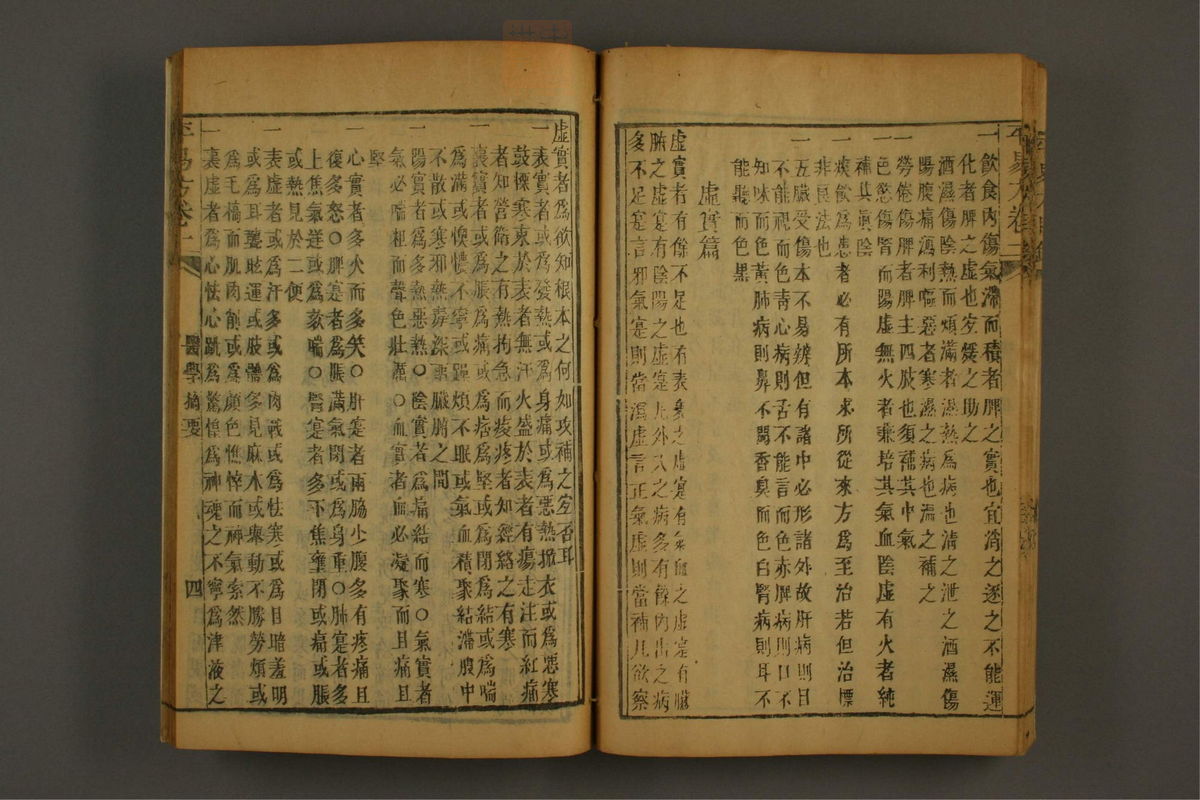 一飲食內傷氣滯而積者脾之實也宜消之逐之不能運
化者脾之虛也宜煖之助之
酒濕傷陰熱而煩滿者濕熱爲病也清之泄之酒濕傷
陽腹痛瀉利嘔惡者寒濕之病也溫之補之
勞倦傷脾者脾主四肢也須補其中氣
一色慾傷腎而陽虛無火者兼培其氣血陰虛有火者純
補其眞陰
一痰飲爲患者必有所本求所從來方爲至治若但治標
非良法也
一五臟受傷本不易辨但有諸中必形諸外故肝病則目
不能視而色青心病則舌不能言而色赤脾病則口不
知味而色黃肺病則鼻不聞香臭而色白腎病則耳不
能聽而色黑
虛實篇
虛實者有餘不足也有表裏之虛寔有氣血之虛寔有臟
腑之虛寔有陰陽之虛寔凡外入之病多有餘內出之病
多不足寔言邪氣寔則當瀉虛言正氣虛則當補凡欲察
虛實者爲欲知根本之何如攻補之宜否耳
一表實者或爲發熱或爲身痛或爲惡熱掀衣或爲惡寒
鼓慄寒束於表者無汗火盛於表者有瘍走注而紅痛
者知營衛之有熱拘急而痠疼者知經絡之有寒
一裏實者或爲脹爲痛或爲痞爲堅或爲閉爲結或爲喘
爲滿或懊憹不寧或躁煩不眠或氣血積聚結滯腹中
不散或寒邪熱毒深重臟腑之間
一陽實者爲多熱惡熱○陰實者爲痛結而寒○氣實者
氣必喘粗而聲色壯厲○血實者血必凝聚而且痛且
堅
一心實者多火而多笑○肝寔者兩脇少腹多有疼痛且
復多怒○脾寔者爲脹滿氣閉或爲身重○肺寔者多
上焦氣逆或爲欬喘○腎寔者多下焦壅閉或痛或脹
或熱見於二便
一表虛者或爲汗多或爲肉戰或爲怯寒或爲目暗羞明
或爲耳聾眩運或肢體多見麻木或舉動不勝勞煩或
爲毛槁而肌肉削或爲顏色憔悴而神氣索然
一裏虛者爲心怯心跳爲驚惶爲神魂之不寧爲津液之
易方卷一 醫學摘要 四